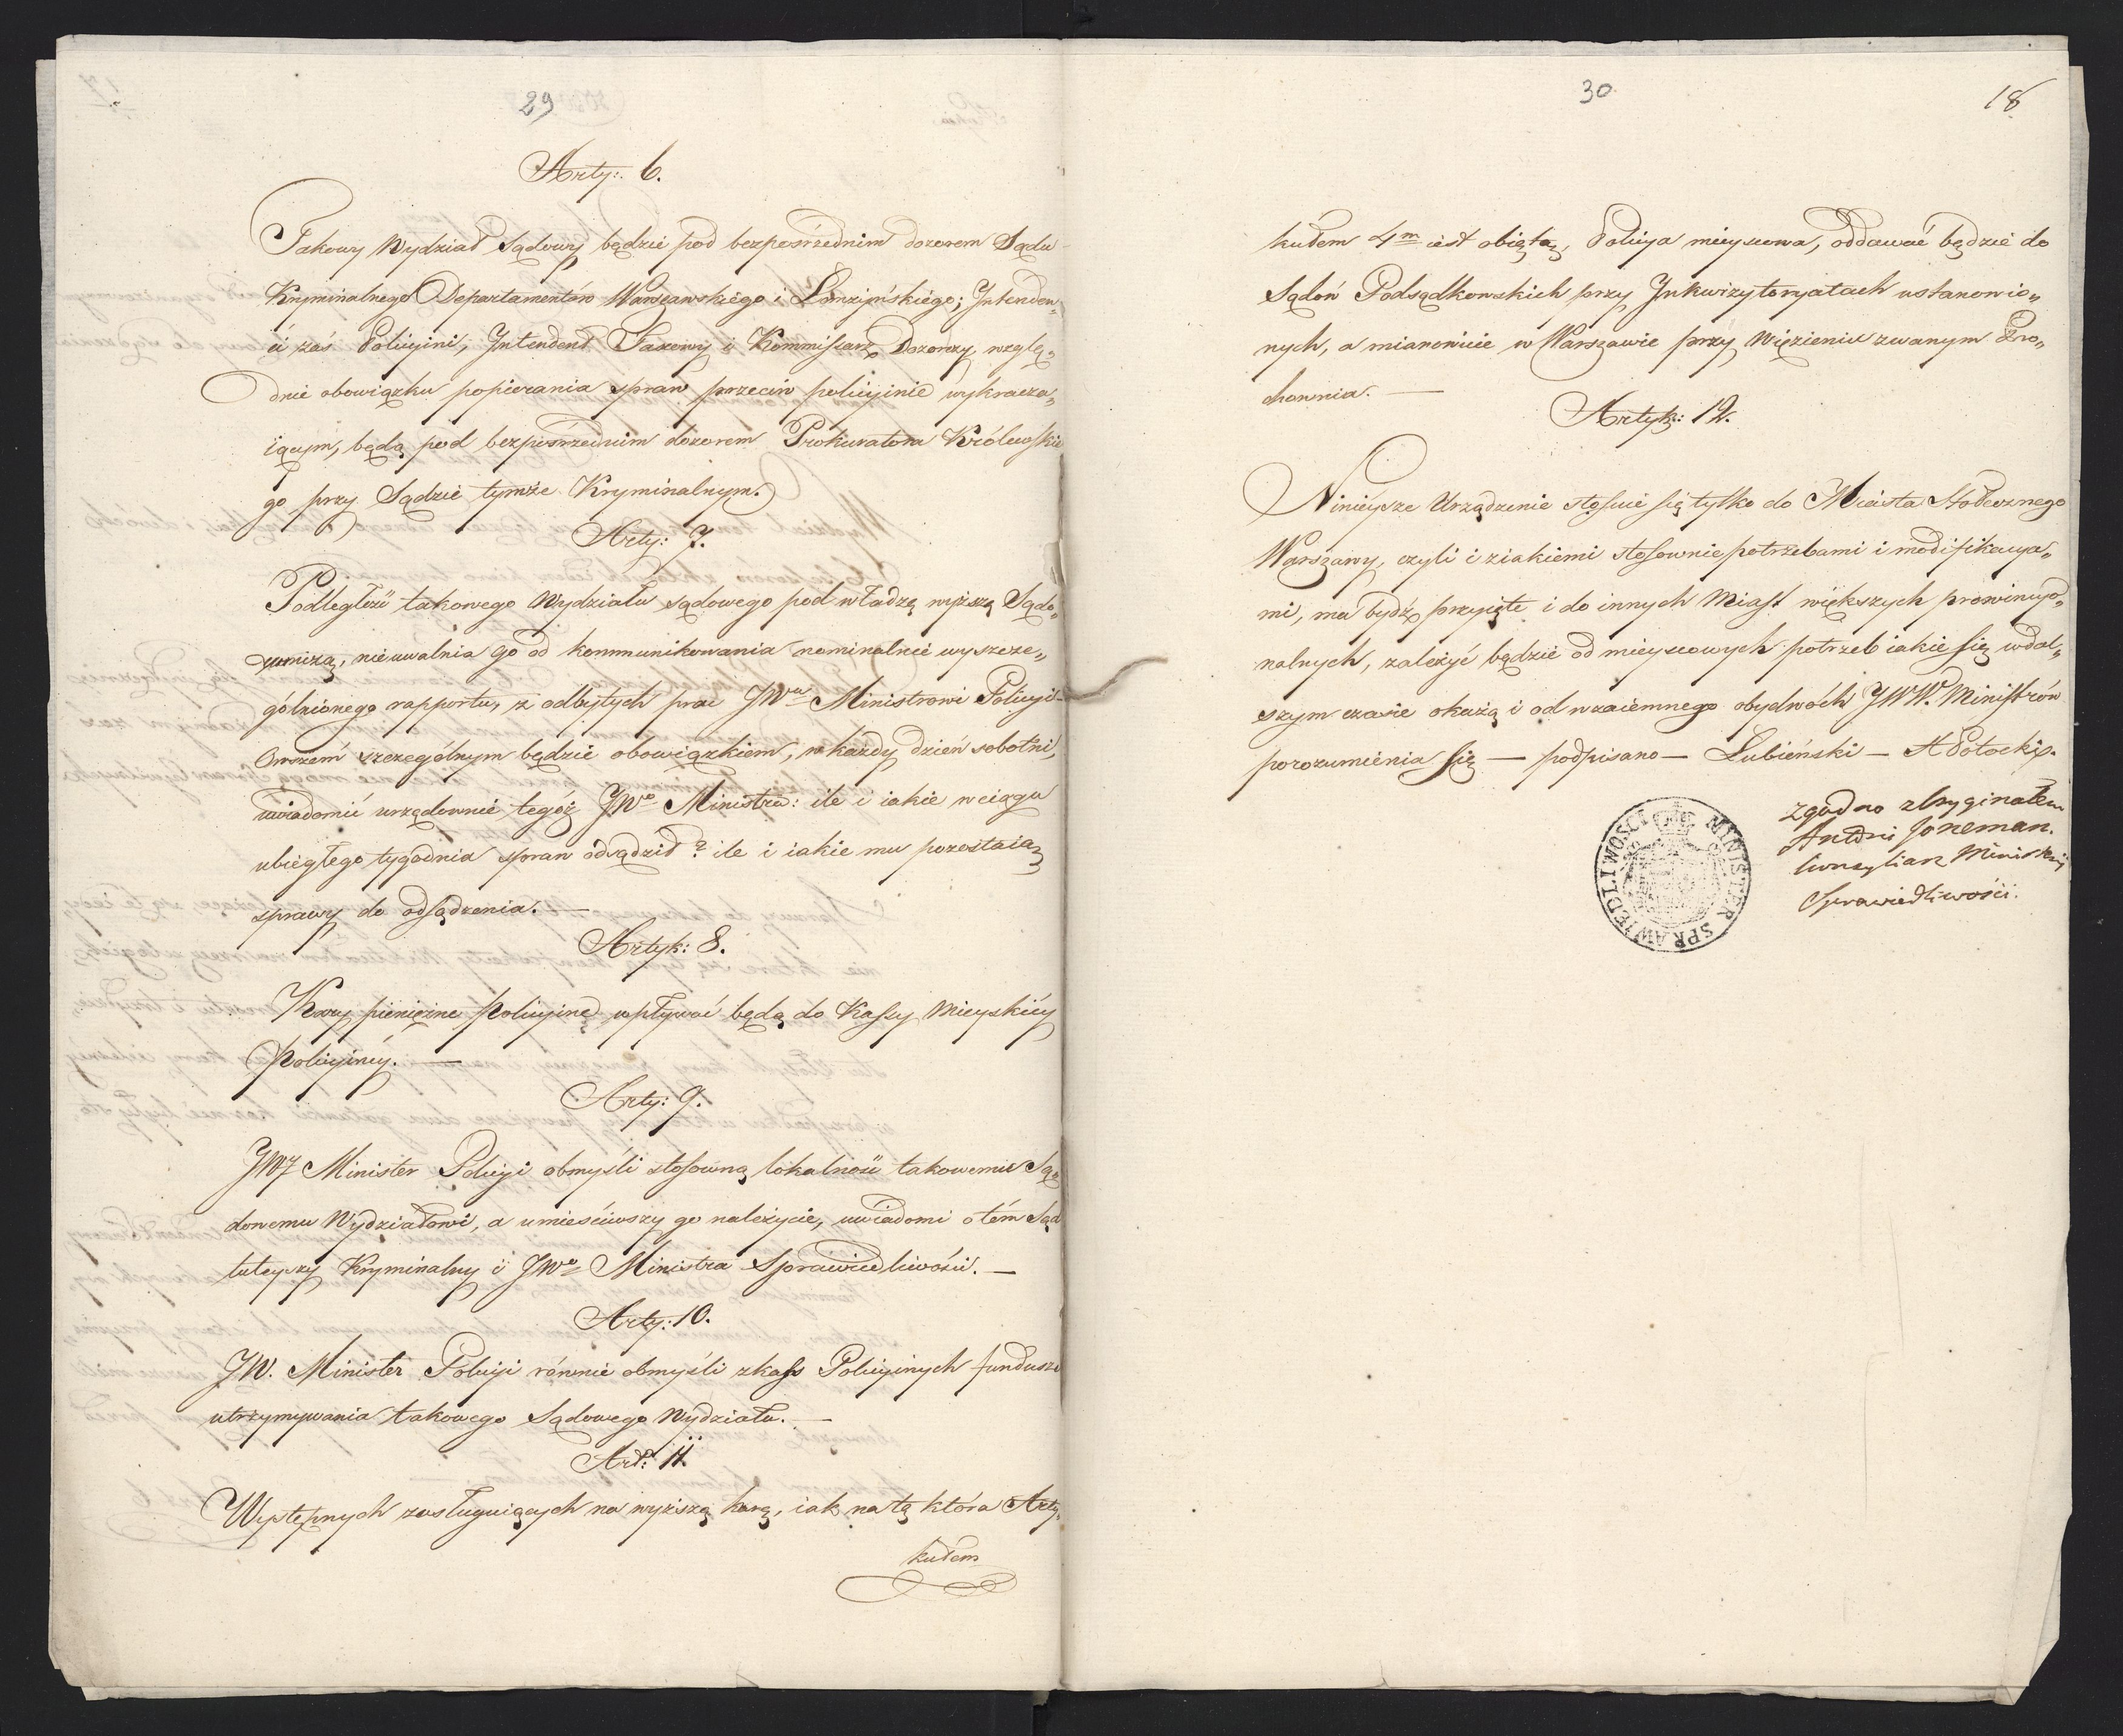 29
Arty: 6.
Takowy Wydział Sądowy będzie pod bezpośrzednim dozorem Sądu
Kryminalnego Departamentów Warszawskiego i Łomżyńskiégo; Intenden„
ci zaś Policyini, Intendent Taxowy i Kommissarz Dozorczy wzglę„
dnie obowiązku popierania spraw przeciw policyinie wykracza„
iącym, będą pod bezpośrzednim dozorem Prokuratora Królewskie
go przy Sądzie tymże Kryminalnym.
Arty: 7.
Podległość takowego Wydziału sądowego pod władzą wyższą Sądo„
wniczą, nieuwalnia go od kommunikowania nominalnie wyszcze„
gólnionego rapportu, z odbytych prac JWu Ministrowi Policyi
Owszem szczególnym będzie obowiązkiem, w każdy dzień sobotni,
uwiadomić urzędownie tegóż JWo Ministra: ile i iakie w ciągu
ubiegłego tygodnia spraw odsądził? ile i iakie mu pozostaią
sprawy do odsądzenia. —
Artyk: 8.
Kary pieniężne Policyine wpływać będą do Kassy Mieyskiéy
Policyinéy. —
Arty: 9.
JW Minister Policyi obmyśli stosowną lokalność takowemu Są„
dowemu Wydziałowi, a umieściwszy go należycie, uwiadomi o tém Sąd
tuteyszy Kryminalny i JWo Ministra Sprawiedliwości. —
Arty: 10.
JW. Minister Policyi równie obmyśli z kass Policyinych fundusze
utrzymywania takowego Sądowego Wydziału. —
Art: 11.
Występnych zasługuiących na wyższą karę, iak na tę która Arty„
kułem
30
18
kułem 4m iest obięta, Policya mieyscowa, oddawać będzie do
Sądów Podsądkowskich przy Inkwizytoryatach ustanowio„
nych, a mianowicie w Warszawie przy Więzieniu zwanym Pro„
chownia. —
Artyk: 12.
Ninieysze Urządzenie stosuie się tylko do Miasta Stołecznego
Warszawy, czyli i z iakiemi stosownie potrzebami i modifikacya„
mi, ma bydź przyięte i do innych Miast większych prowincyo„
nalnych, zależyć będzie od mieyscowych potrzeb iakie się w dal„
szym czasie okażą i od wzaiemnego obydwóch JWW. Ministrów
porozumienia się — podpisano — Łubieński — A Potocki.
zgodno z Oryginałem
Antoni
Konsyliarz Minister
Sprawiedliwości.
MINISTER SPRAWIEDLIWOSCI